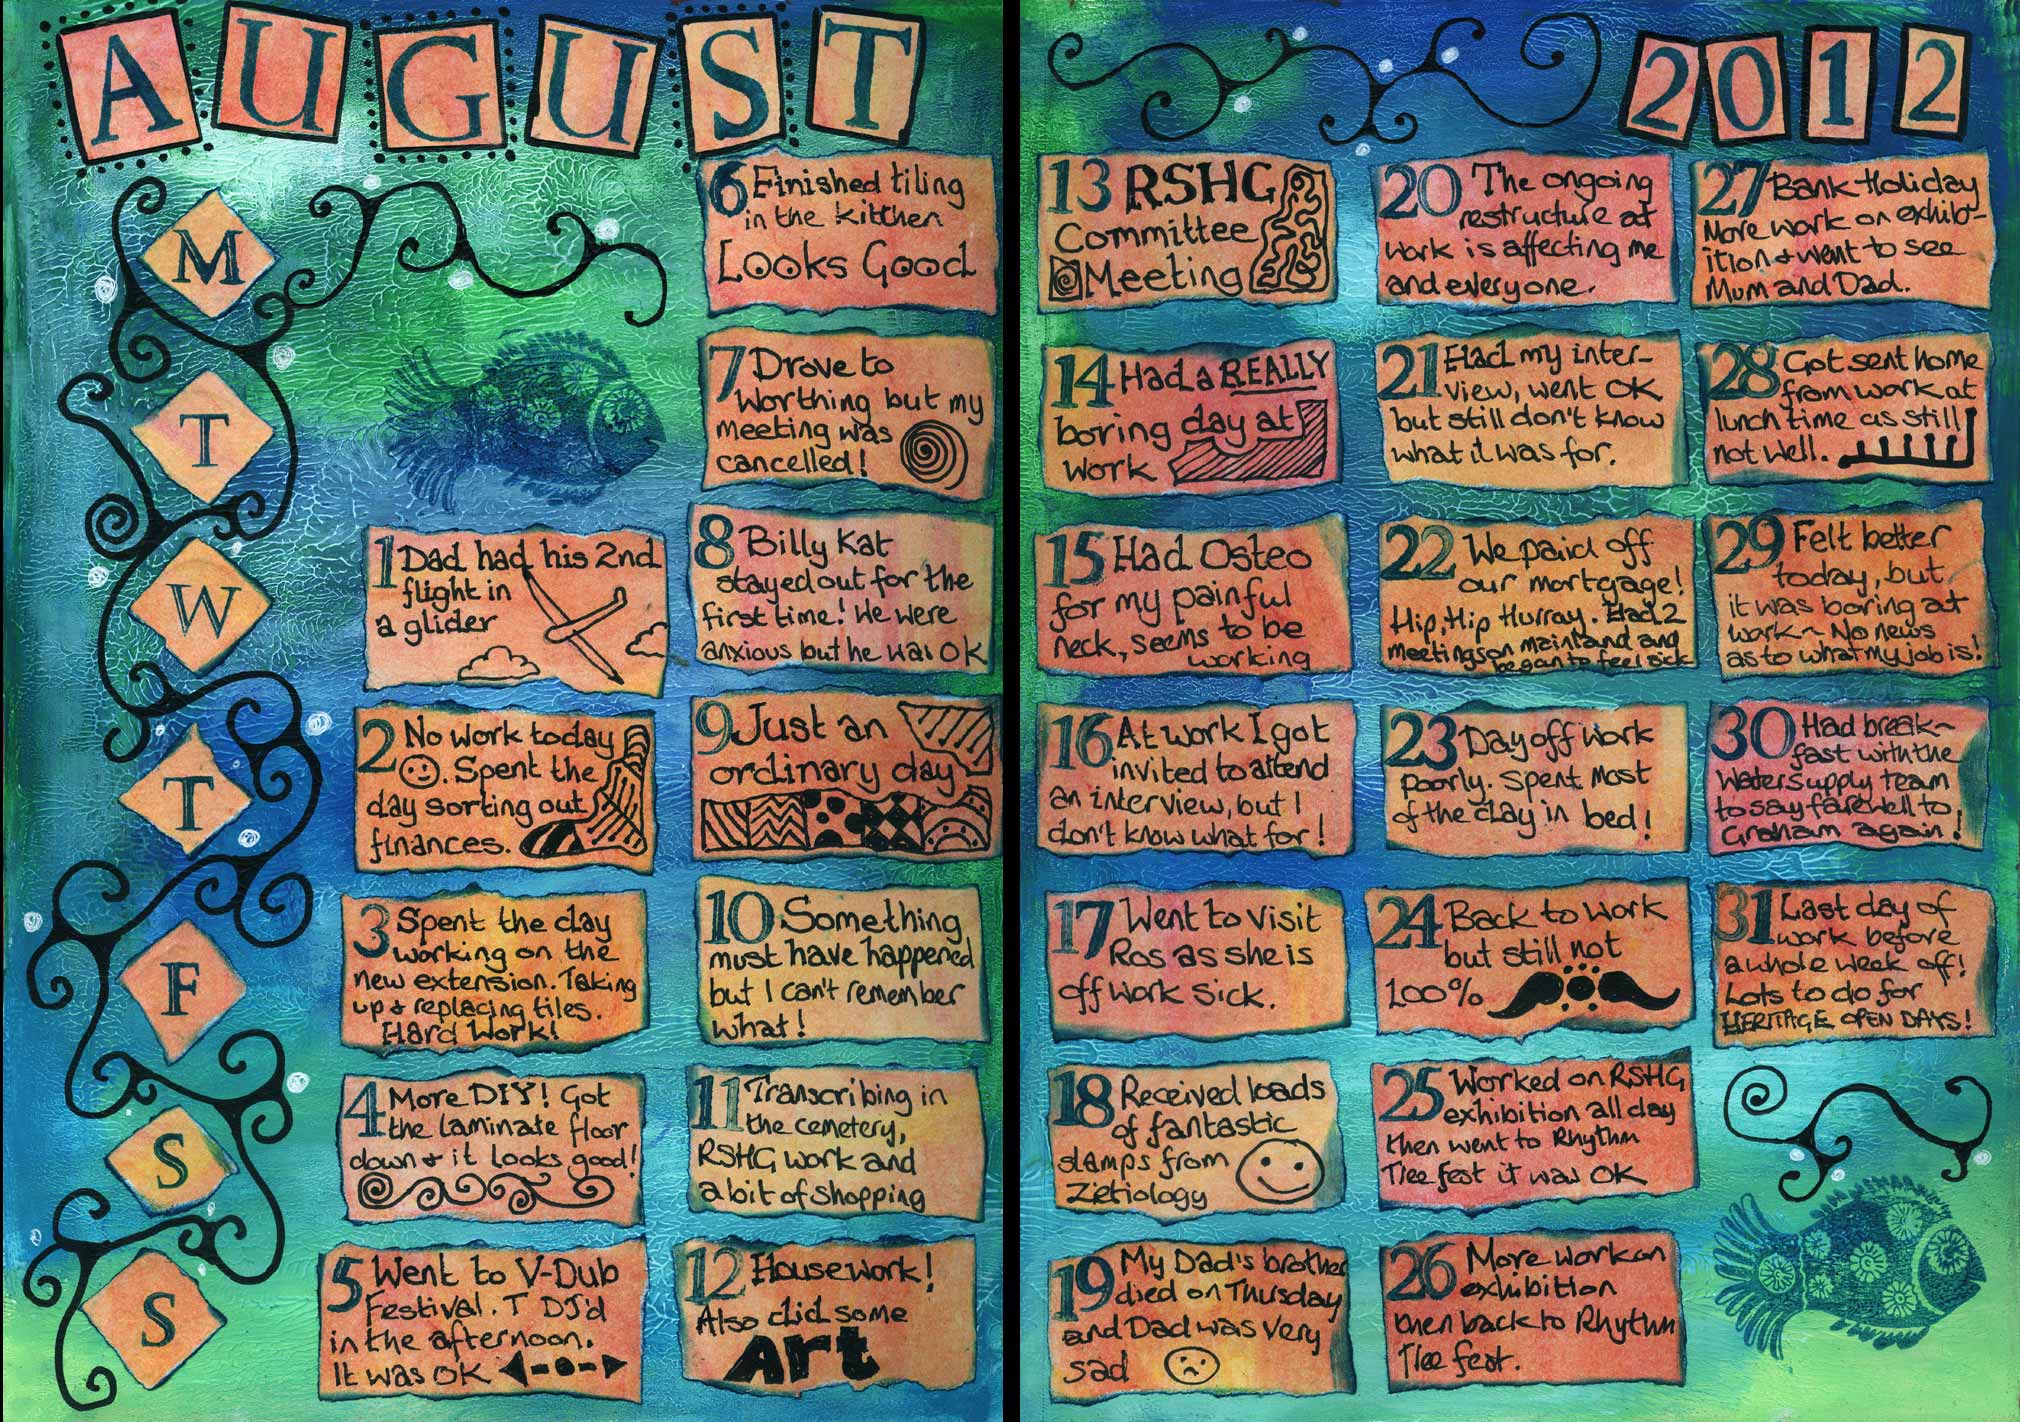 AUGUST
2012
M
T
W
T
F
S
S
1 Dad had his 2nd
flight in
a glider
2 No work today
. Spent the
day sorting out
finances.
3 Spent the day
working on the
new extension. Taking
up + replacing tiles.
Hard Work!
4 More DIY! Got
the laminate floor
down + it looks good!
5 Went to V-Dub
Festival. T DJ'd
in the afternoon.
It was OK
6 Finished tiling
in the kitchen
Looks Good
7 Drove to
Worthing but my
meeting was
cancelled!
8 Billy Kat
stayed out for the
first time! We were
anxious but he was OK
9 Just an
ordinary day
10 Something
must have happened
but I can't remember
what!
11 Transcribing in
the cemetery,
RSHG work and
a bit of shopping
12 Housework!
Also did some
Art
13 RSHG
Committee
Meeting
14 Had a REALLY
boring day at
work
15 Had Osteo
for my painful
neck, seems to be
working
16 At work I got
invited to attend
an interview, but I
don't know what for!
17 Went to visit
Ros as she is
off work sick.
18 Received loads
of fantastic
stamps from
Zietiology
19 My Dad's brother
died on Thursday
and Dad was very
sad
20 The ongoing
restructure at
work is affecting me
and everyone.
21 Had my inter-
view, went OK
but still don't know
what it was for.
22 We paid off
our mortgage!
Hip, Hip Hurray. Had 2
meetings on mainland and
began to feel sick
23 Day off work
poorly. Spent most
of the day in bed!
24 Back to work
but still not
100%
25 Worked on RSHG
exhibition all day
then went to Rhythm
Tree fest it was OK
26 More work on
exhibition
then back to Rhythm
Tree fest.
27 Bank Holiday
More work on exhib-
ition + went to see
Mum and Dad.
28 Got sent home
from work at
lunch time as still
not well.
29 Felt better
today, but
it was boring at
work ~ No news
as to what my job is!
30 Had break~
fast with the
Water Supply team
to say farewell to
Graham again!
31 Last day of
work before
a whole week off!
Lots to do for
HERITAGE OPEN DAYS!